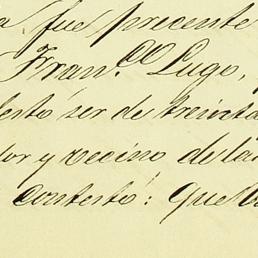 a fue precente
Fran.co Lugo,
festó ser de treinta
dor y vecino de la
contestó: Que